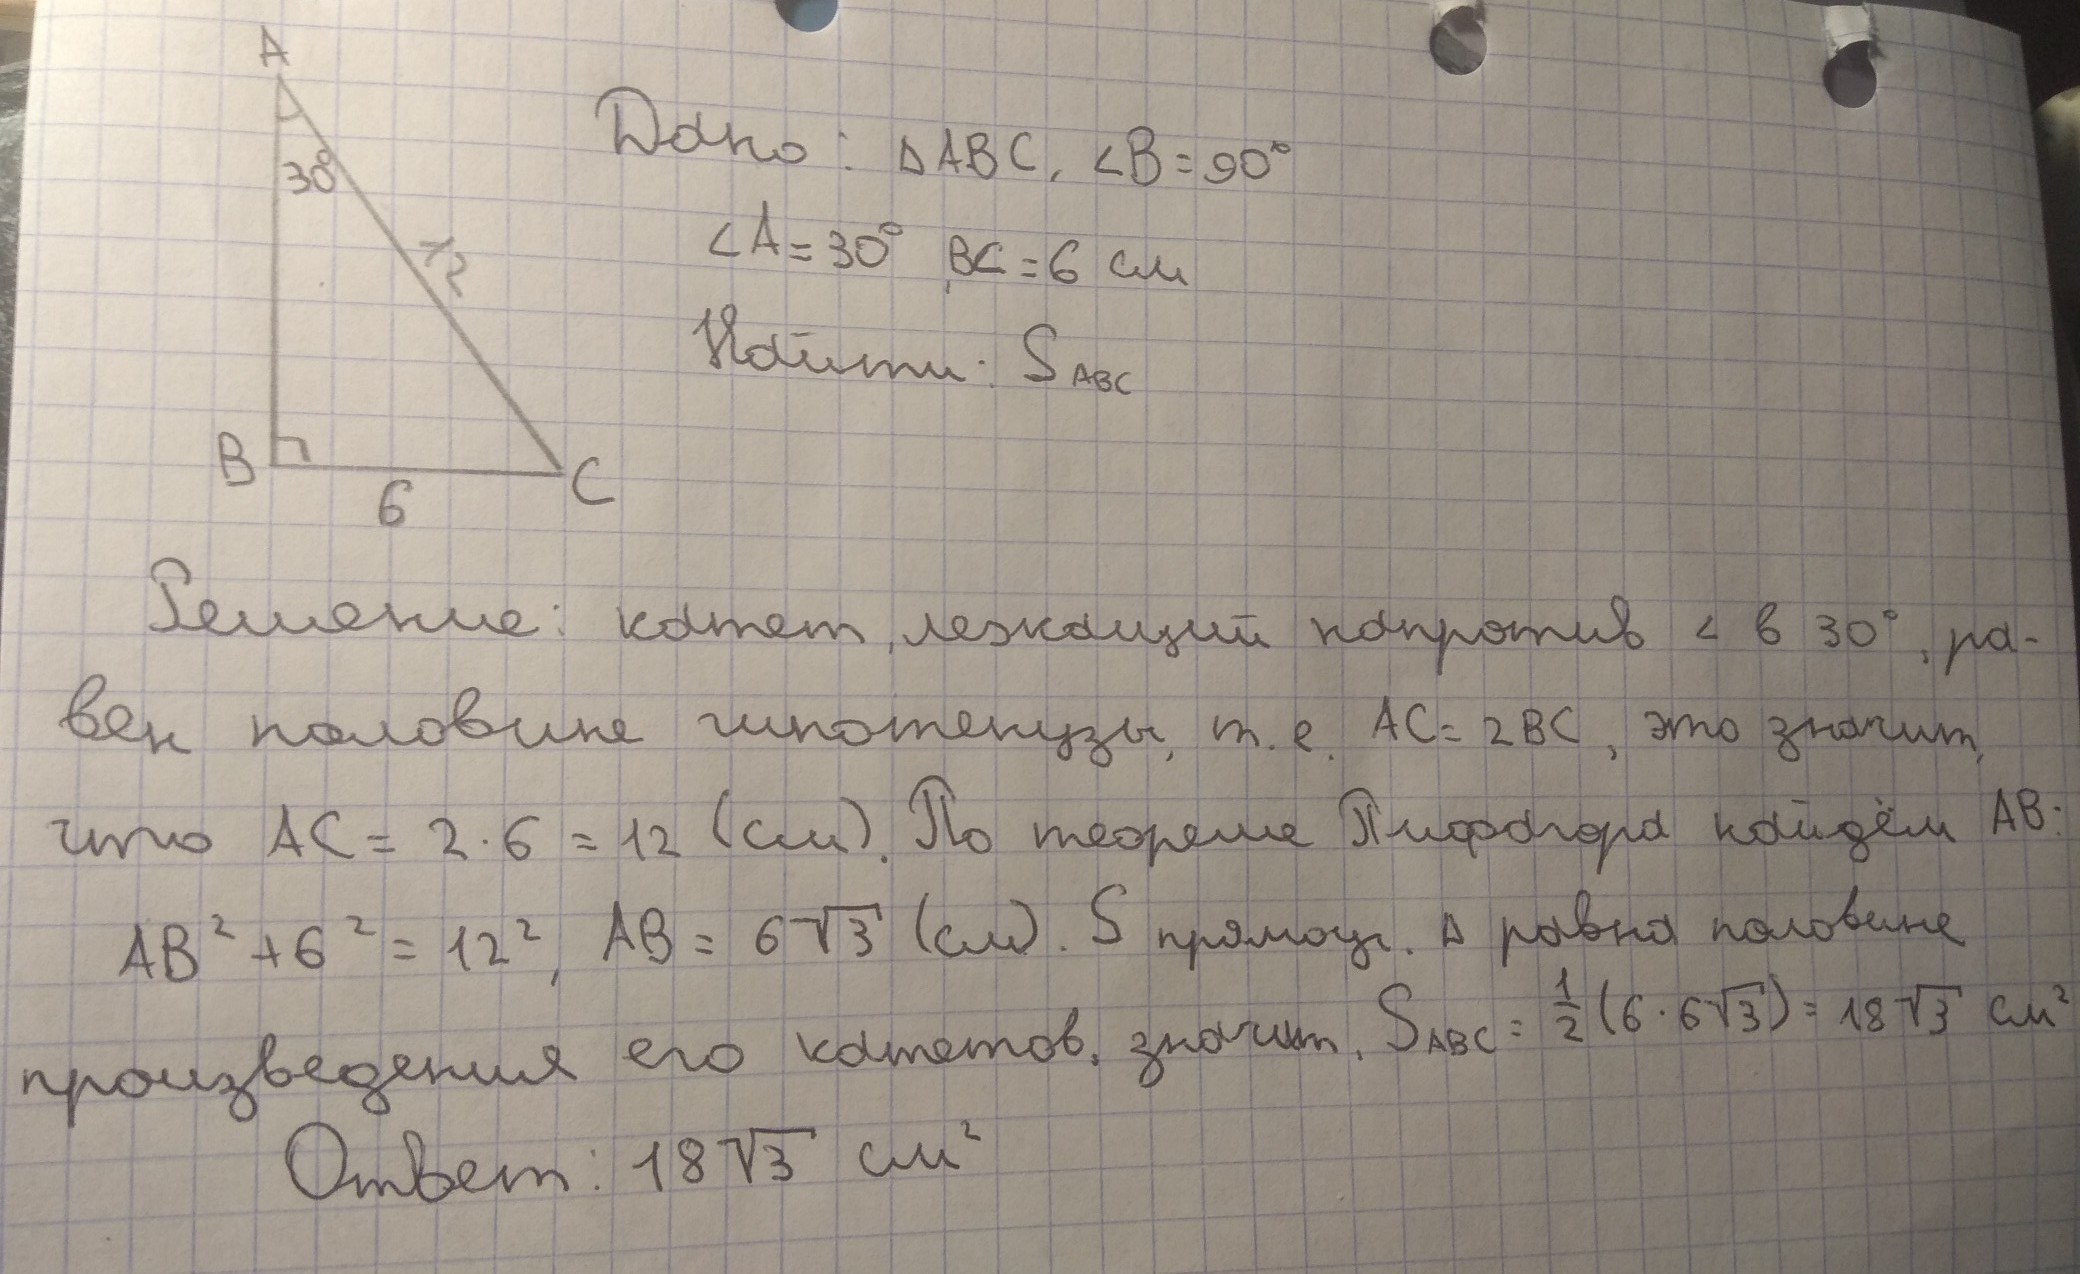 A
30°
12
B
6
C
Дано: △ABC, ∠B=90°
∠A=30°, BC=6 см
Найти: S_ABC
Решение: катет, лежащий напротив ∠ в 30°, ра-
вен половине гипотенузы, т.е. AC=2BC, это значит,
что AC=2·6=12 (см). По теореме Пифагора найдём AB:
AB²+6²=12², AB=6√3 (см). S прямоуг. △ равна половине
произведения его катетов, значит, S_ABC=1/2(6·6√3)=18√3 см²
Ответ: 18√3 см²